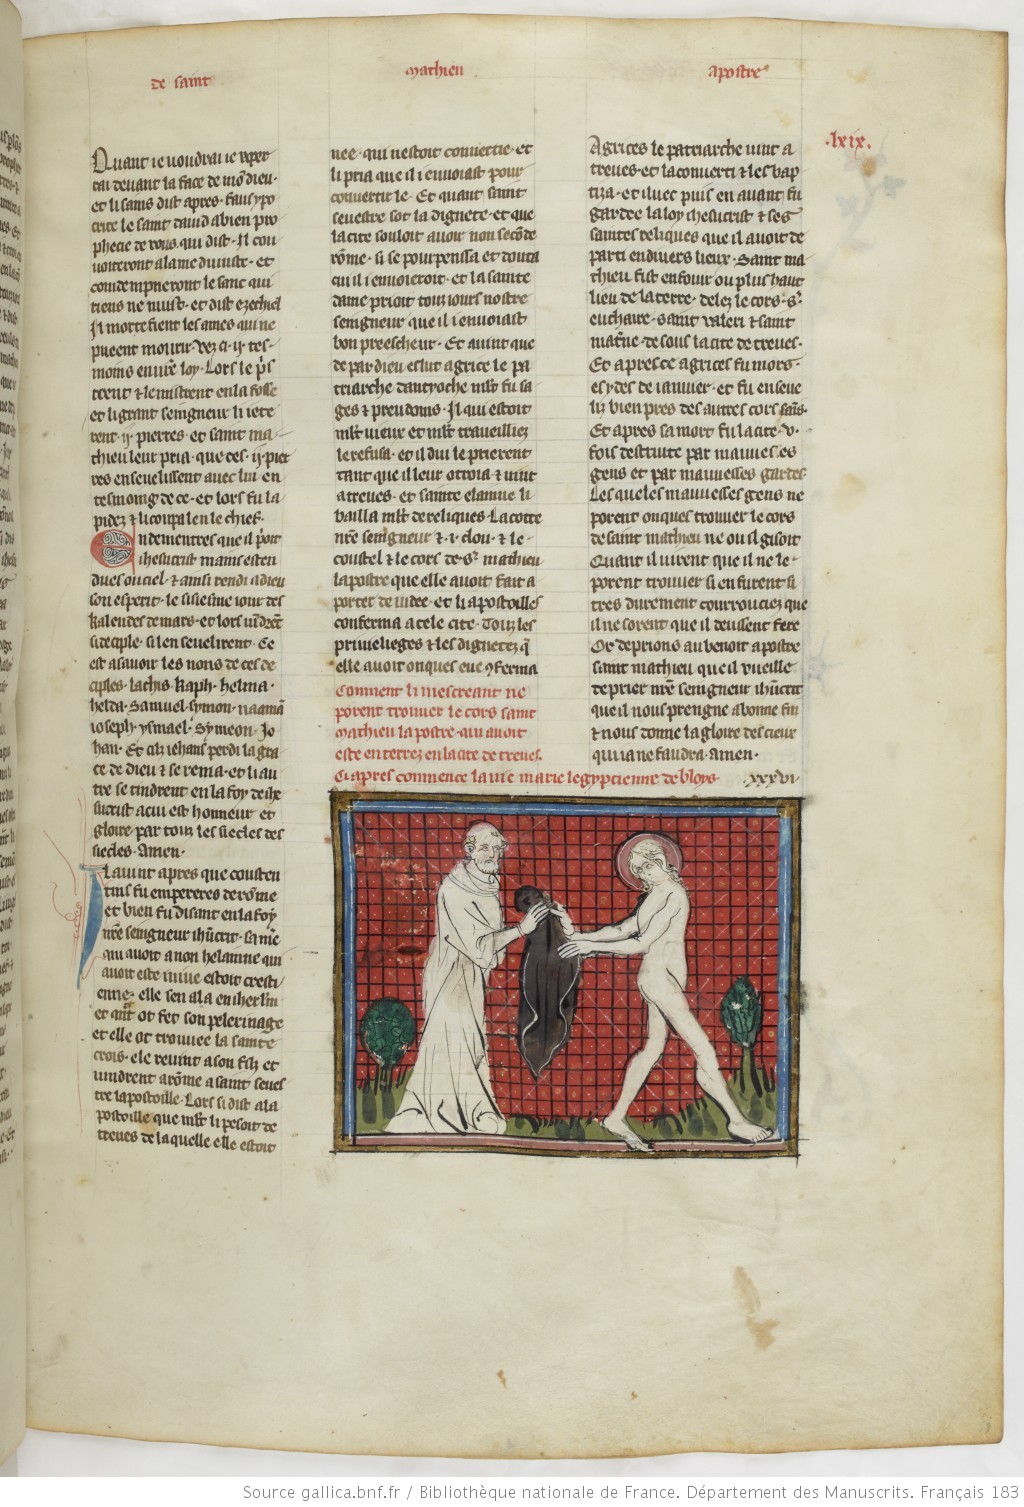 de saint
mathieu
apostre
.lxix.
Quant ie uoudrai ie repet
tai deuant la face de mō dieu.
et li sains dist apres. faus ypo
crite le saint dauid a bien pro
phecie de vous. qui dist. Il cou
uoiteront a lame du iuste. et
condempneront le sanc qui
riens ne nuist. et dist ezechiel
Il mortefient les ames qui ne
pueent mourir. vez ci .ij. tes-
moins en nr̄e loy. Lors le pr̄s
trent ⁊ le mistrent en la fosse
et li grant seingneur li iete
rent .ij. pierres. et saint ma-
thieu leur pria. que ces .ij. pier
res enseuelissent auec lui en
tesmoing de ce. et lors fu la
pidez ⁊ li coupa len le chief.
Endementres que il prioit
ihesucrist mains esten
dues ou ciel. ⁊ ainsi rendi a dieu
son esperit. le sisiesme iour des
kalendes de mars. et lors vīdrēt
si deciple. si len seuelirent. Ce
est a sauoir les nons de ces de
ciples. lachis. kaph. helma.
helda. Samuel. symon. naamā
ioseph. ysmael. Symeon. Jo
han. Et cilz iehans perdi la gra
ce de dieu ⁊ se renia. et li au
tre se tindrent en la foy de ihe
sucrist a cui est honneur et
gloire par touz les siecles des
siecles. Amen.
Il auint apres que consten
tins fu empereres de rōme
et bien fu disant en la foy
nr̄e seingneur ih̄ucrit. sa me
qui auoit a non helainne qui
auoit este iuiue estoit cresti
enne. elle sen ala en iherl̄m
et qn̄t ot fet son pelerinage
et elle ot trouuee la sainte
crois. ele reuint a son filz et
uindrent a rōme a saint seues
tre lapostoille. Lors si dist a la
postoille que ml̄t li pesoit de
treues de la quelle elle estoit
nee. qui nestoit conuertie. et
li pria que il i enuoiast pour
conuertir le. Et quant saint
seuestre sot la dignete. et que
la cite souloit auoir non secōde
rōme. si se pourpenssa et douta
cui il i enuoieroit. et la sainte
dame prioit touz iours nostre
seingneur que il i enuoiast
bon preescheur. Et auint que
de par dieu eslut agrice le pa
triarche dantyoche ml̄t fu sa
ges ⁊ preudoms. Il qui estoit
ml̄t vieux et ml̄t traueilliez
le refusa. et il dui le prierent
tant que il leur ottroia ⁊ uint
a treues. et sainte elainne li
bailla ml̄t de reliques. La cotte
nr̄e seingneur ⁊ .i. clou. ⁊ le.
coustel ⁊ le cors de .s. mathieu
lapostre que elle auoit fait a
porter de iudee. et li apostoilles
conferma a cele cite. Touz les
priuelieges ⁊ les dignetez q̄
elle auoit onques eue 9ferma
Comment li mescreant ne
porent trouuer le cors saint
mathieu lapostre. qui auoit
este en terrez en la cite de treues.
Ci apres commence la uie marie legypcienne de bloys. .xxxvi
Agrices le patriarche uint a
treues. et la conuerti ⁊ les bap
tiza. et iluec puis en auant fu
garder la loy ihesucrist ⁊ ses
saintes reliques que il auoit de
parti en diuers lieux. Saint ma
thieu fist enfouir ou plus haut
lieu de la terre. delez le cors .s.
euchaire. saint valeri ⁊ saint
mat̄ne de sous la cite de treues.
Et apres ce agrices fu mors.
es ydes de ianuier. et fu enseue
liz bien pres des autres cors sais.
Et apres sa mort fu la cite .v.
fois destruite par mauueses
gens et par mauuesses gardes.
Les queles mauuesses gens ne
porent onques trouuer le cors
de saint mathieu ne ou il gisoit
Quant il uirent que il ne le.
porent trouuer si en furent si
tres durement courrouciez que
il ne sorent que il deussent fere
Or deprions au benoit apostre
saint mathieu que il vueille
deprier nr̄e seingneur ih̄ucrit
que il nous prengne a bonne fin
et nous donne la gloire des cieux
qui ia ne faudra. Amen.
Source gallica.bnf.fr / Bibliothèque nationale de France. Département des Manuscrits. Français 183